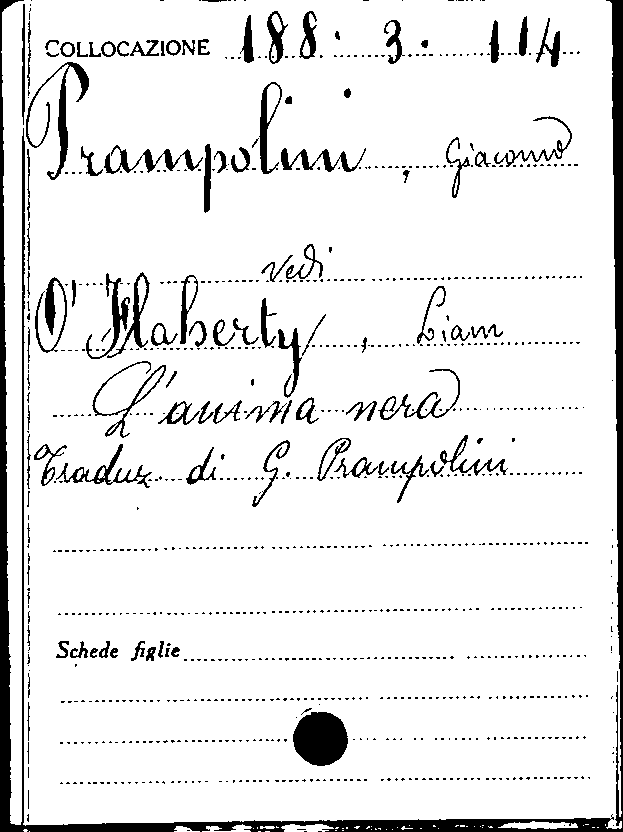 COLLOCAZIONE 188. 3. 114
Prampolini, Giacomo
vedi
O'Flaherty, Liam
L'anima nera
Traduz. di G. Prampolini
Schede figlie